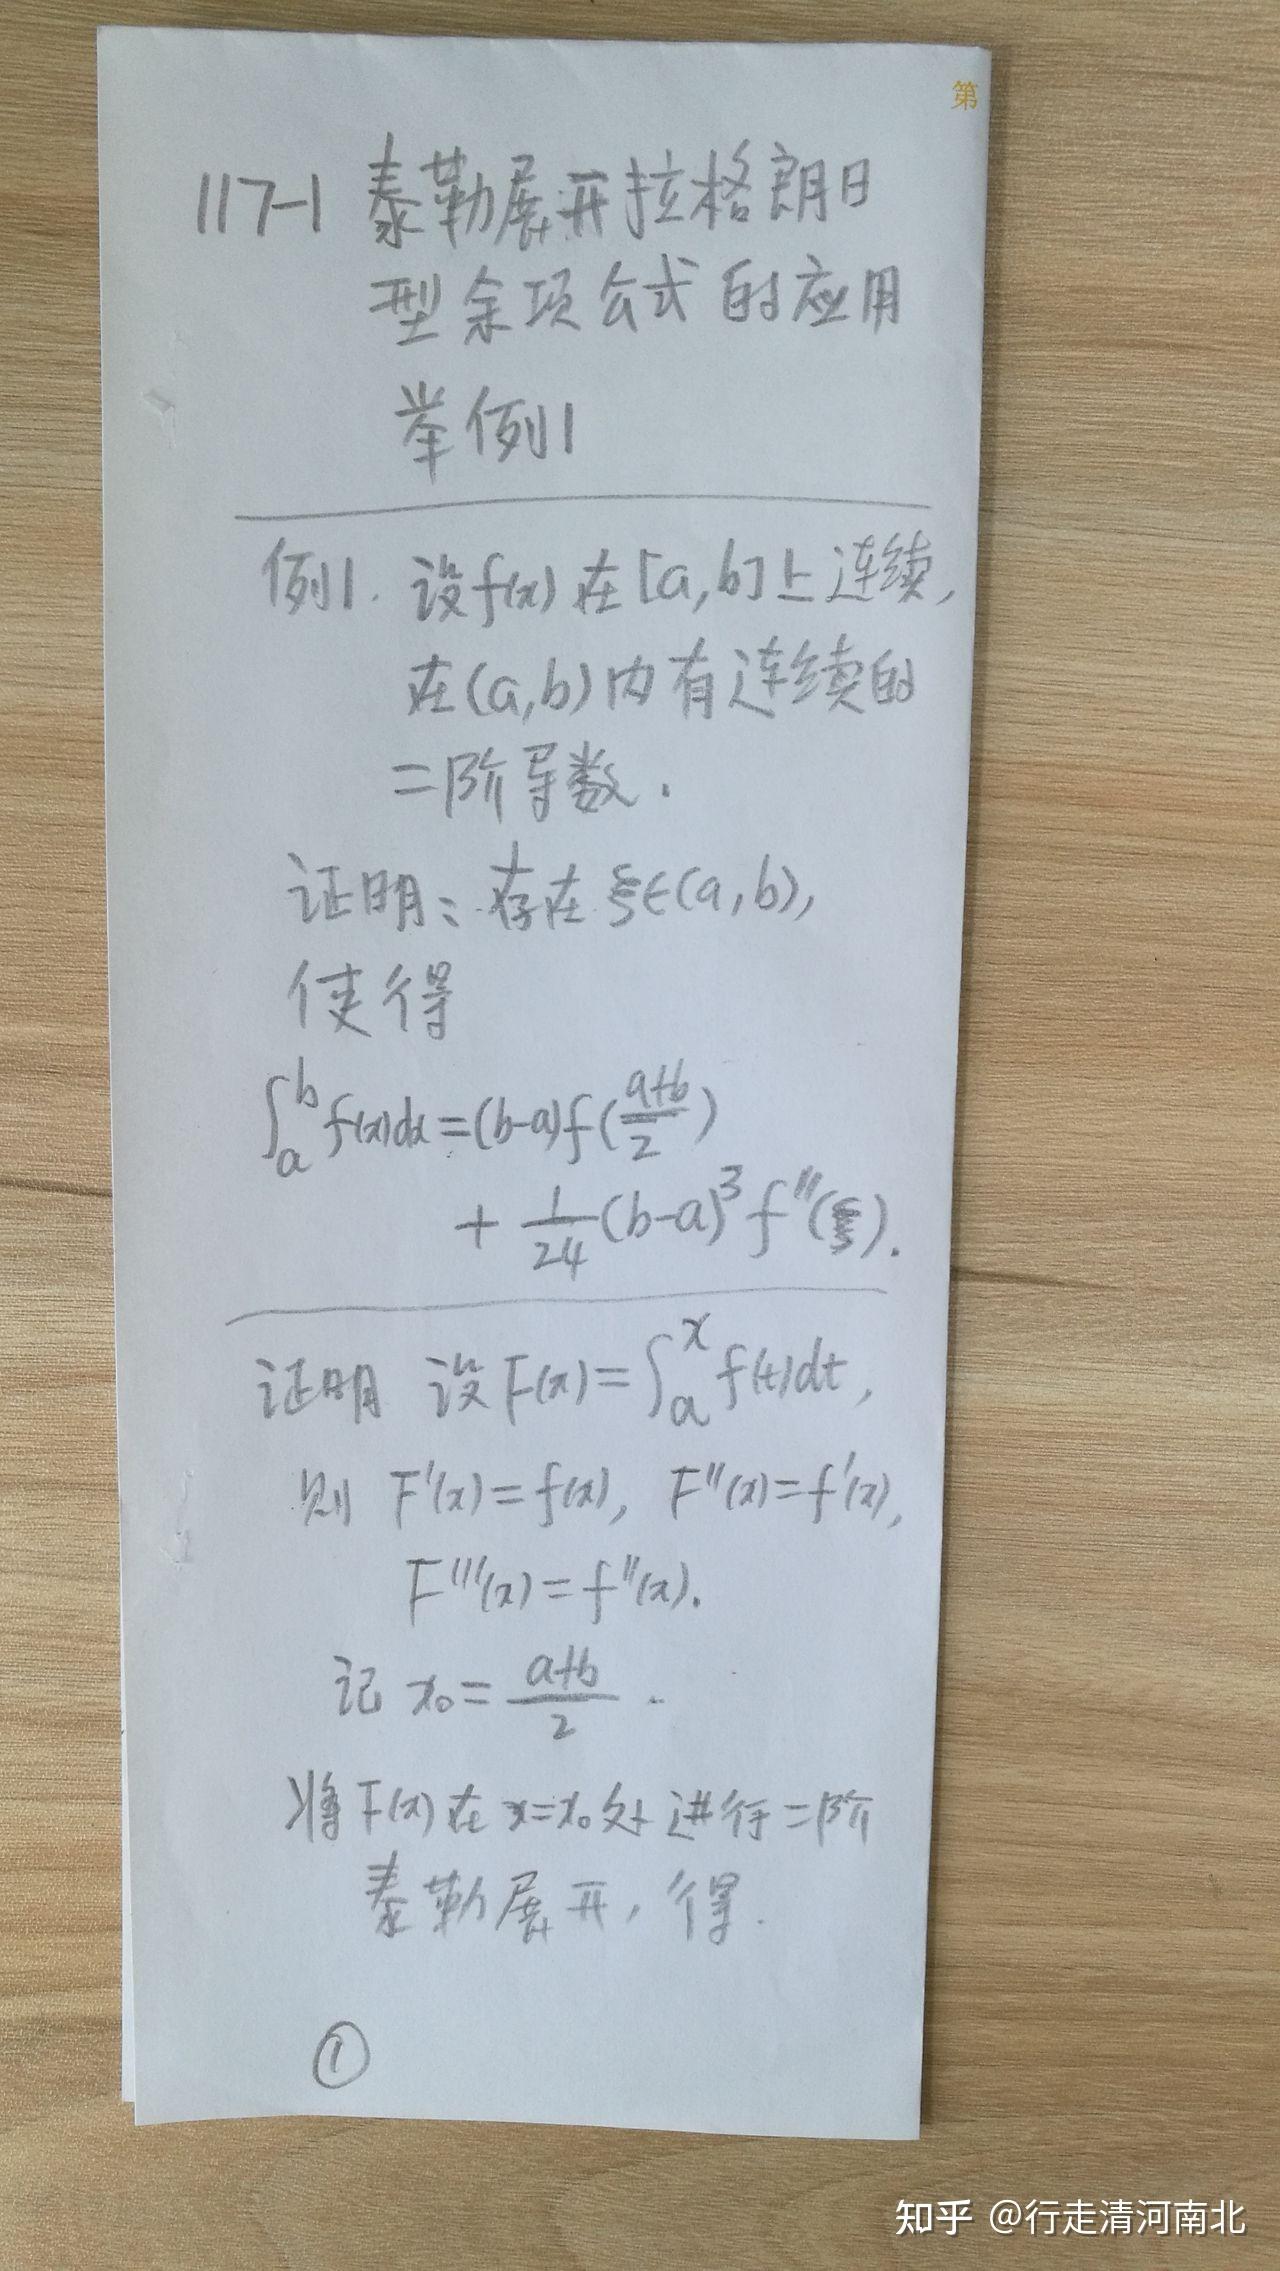 第
117-1 泰勒展开拉格朗日
型余项公式的应用
举例1
例1. 设f(x)在[a,b]上连续,
在(a,b)内有连续的
二阶导数.
证明:存在ξ∈(a,b),
使得
∫_a^b f(x)dx=(b-a)f((a+b)/2)
+ 1/24 (b-a)^3 f''(ξ).
证明 设F(x)=∫_a^x f(t)dt,
则 F'(x)=f(x), F''(x)=f'(x),
F'''(x)=f''(x).
记 x₀=(a+b)/2.
将F(x)在x=x₀处进行二阶
泰勒展开,得.
①
知乎 @行走清河南北